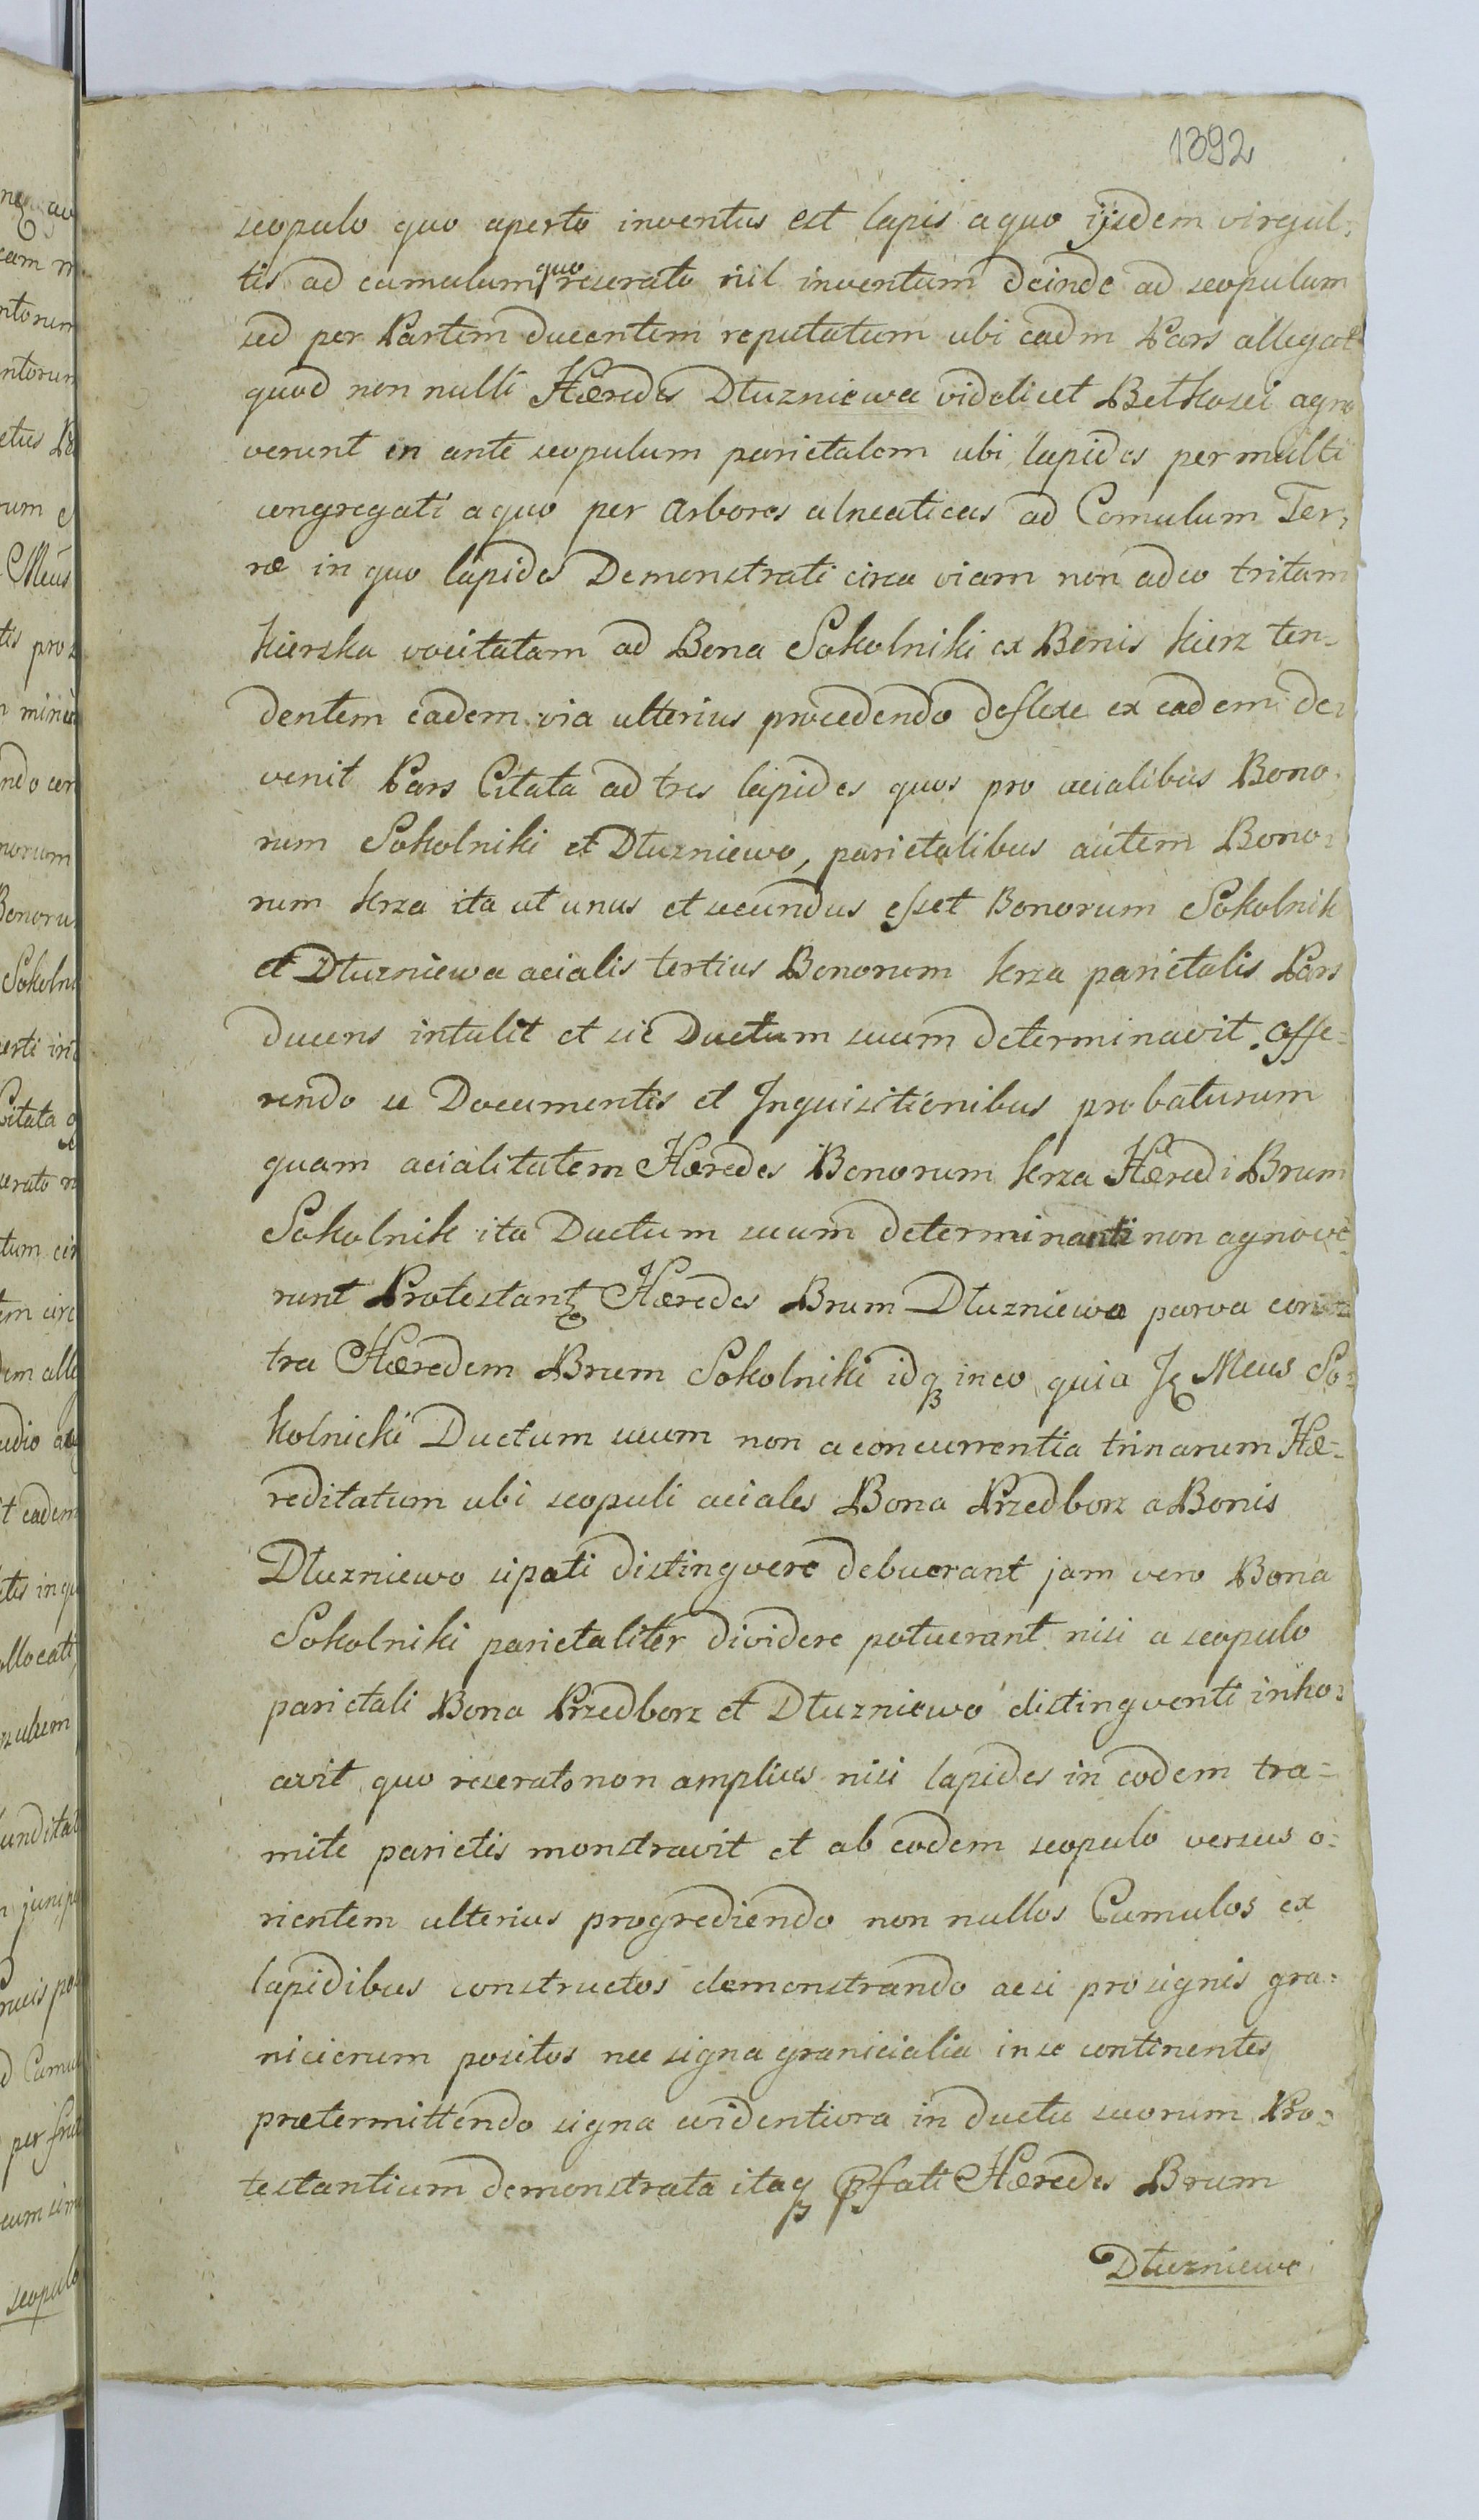 1392
scopulo quo aperto inventus est lapis a quo ijsdem virgul:
tis ad cumulum quo reserato nil inventum deinde ad scopulum
sed per Partem ducentem reputatum ubi eadm Pars allegat
quod non nulli Hæredes Dłuzniewa videlicet Betkosci agno
verunt in ante scopulum parietalem ubi lapides permulti
congregati a quo per arbores alneaticas ad Comulum Ter:
ræ in quo lapides Demonstrati circa viam non adeo tritam
kierska vocitatam ad Bona Sokolniki ex Bonis kierz ten-
dentem eadem via ulterius procedendo deflexe ex eadem de:
venit Pars Citata ad tres lapides quos pro acialibus Bono:
rum Sokolniki et Dłuzniewo, parietalibus autem Bono:
rum krza ita ut unus et secundus esset Bonorum Sokolnik
et Dłuzniewa acialis tertius Bonorum krza parietalis Pars
ducens intulit et sic Ductum suum determinavit. offe=
rendo se Documentis et Inquisitionibus probaturum
quam acialitatem Hæredes Bonorum krza Hæredi Brum
Sokolnik ita Ductum suum determinanti non agnove:
runt Protestant Hæredes Brum Dłuzniewa parva con=
tra Hæredem Brum Sokolniki idq in eo quia Mcus So:
kolnicki Ductum suum non a concurrentia trinarum Hæ=
reditatum ubi scopuli aciales Bona Przedborz a Bonis
Dłuzniewo sipati distingvere debuerant jam vero Bona
Sokolniki parietaliter dividere potuerant nisi a scopulo
parietali Bona Przedborz et Dłuzniewo distingventi inho:
avit quo reserato non amplius nisi lapides in eodem tra=
mite parietis monstravit et ab eodem scopulo versus o:
rientem ulterius progrediendo non nullos Cumulos ex
lapidibus constructos demonstrando acsi pro signis gra:
nicierum positos nec signa granicialia in se continentes
prætermittendo signa evidentiora in ductu suorum Pro:
testantium demonstrata itaq pfati Hæredes Brum
Dłuzniewo